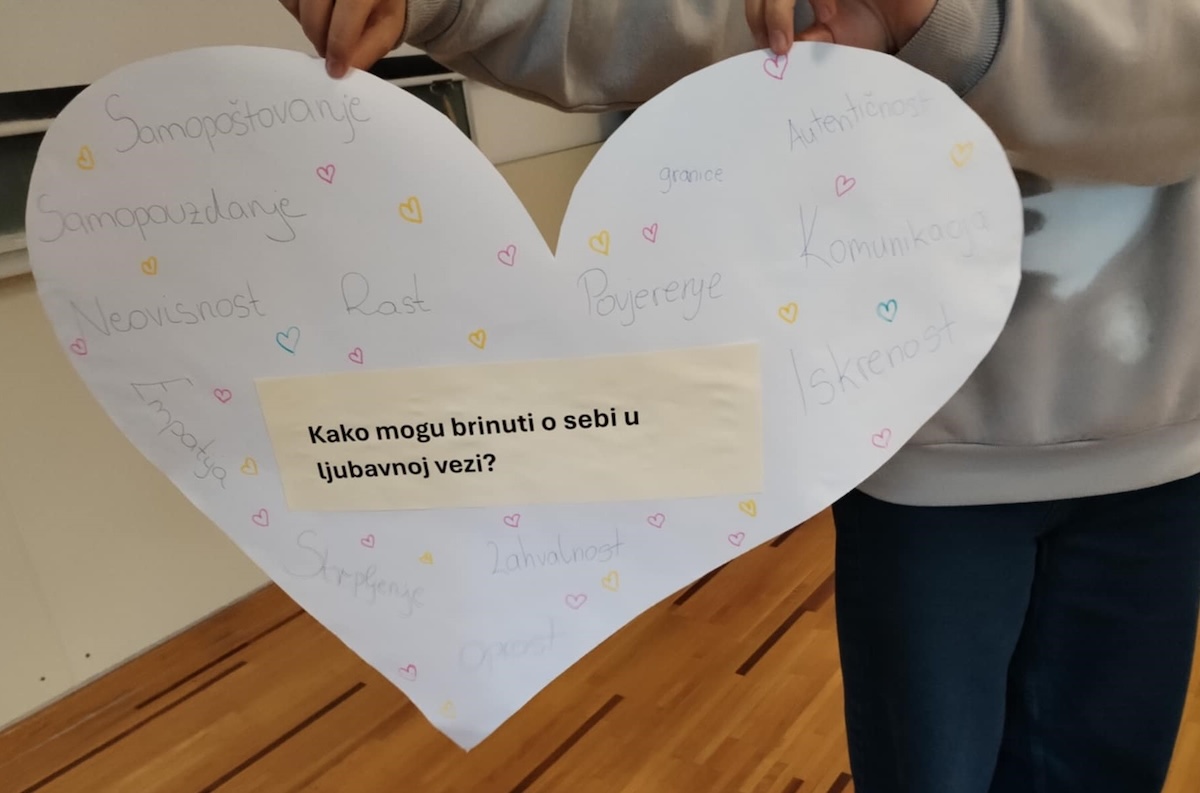 Samopoštovanje
Samopouzdanje
Neovisnost
Rast
Empatija
granice
Autentičnost
Komunikacija
Povjerenje
Iskrenost
Kako mogu brinuti o sebi u
ljubavnoj vezi?
Strpljenje
Zahvalnost
oprost